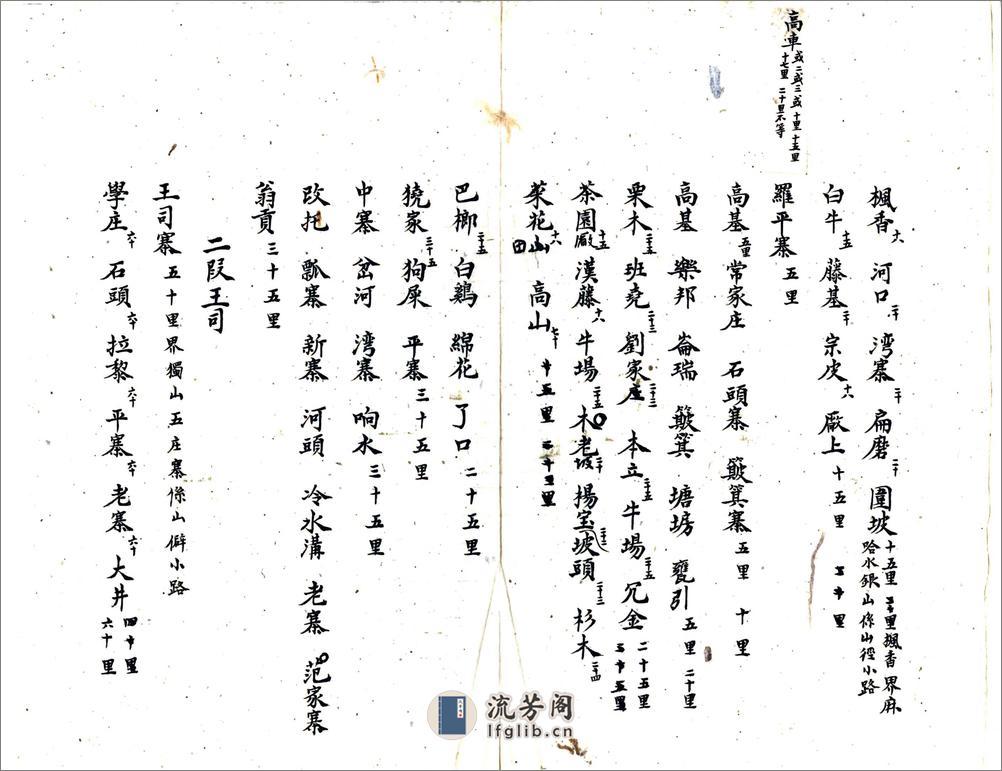 高車 或二或三或十里十五里
十七里二十里不等
楓香 十八 河口 二十 湾寨 二十 扁磨 二十 圍坡 十五里 楓香界麻
哈水銀山係山徑小路
白牛 十五 藤基 二十 宗皮 十八 厰上 十五里
羅平寨 五里
高基 五里 常家庄 石頭寨 簸箕寨 五里 十里
高基 樂邦 崙瑞 簸箕 塘塝 甕引 五里 二十里
栗木 二十五 班堯 二十三 劉家庄 二十三 本立 二十五 牛場 二十五 冗金 二十五里
茶園厰 十五 漢藤 十八 牛場 二十五 木老坡 二十 揚宝坡頭 二十三 杉木 二十四
菜花山 十八 田 高山 七十
巴榔 二十五 白鷄 綿花 了口 二十五里
獟家 三十五 狗屎 平寨 三十五里
中寨 岔河 湾寨 响水 三十五里
改扥 瓢寨 新寨 河頭 冷水溝 老寨 范家寨
翁貢 三十五里
二叚王司
王司寨 五十里界獨山五庄寨係山僻小路
學庄 六十 石頭 六十 拉黎 六十 平寨 六十 老寨 六十 大井 六十里
流芳阁
lfglib.cn